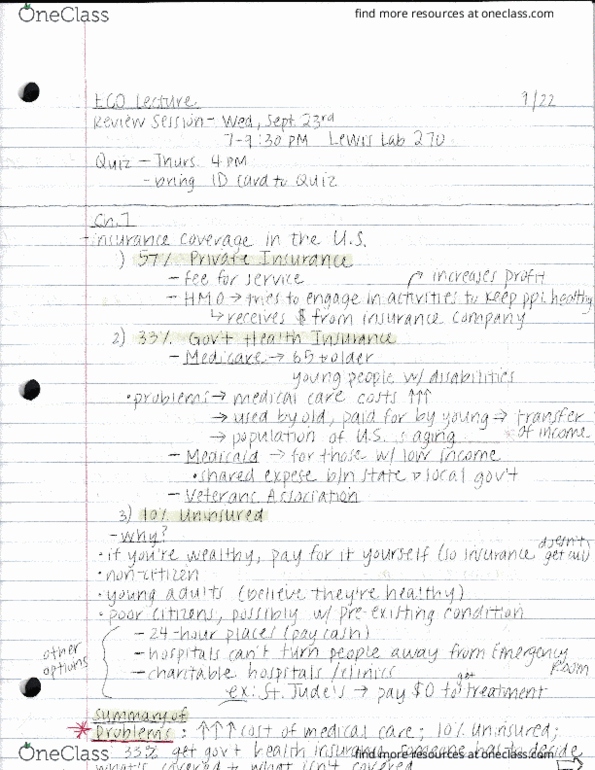 OneClass
find more resources at oneclass.com
ECO Lecture 9/22
Review Session - Wed, Sept 23rd
7-9:30 PM Lewis Lab 270
Quiz - Thurs. 4 PM
- bring ID card to Quiz
Ch.7
- insurance coverage in the U.S.
1) 57% Private Insurance
- fee for service
↱ increases profit
- HMO → tries to engage in activities to keep ppl healthy
↳ receives $ from insurance company
2) 33% Gov't Health Insurance
- Medicare → 65 + older
young people w/ disabilities
• problems → medical care costs ↑↑↑
→ used by old, paid for by young → transfer
of income
→ population of U.S. is aging
- Medicaid → for those w/ low income
• shared expese b/n state & local gov't
- Veterans Association
3) 10% Uninsured
- why?
• if you're wealthy, pay for it yourself (so insurance doesn't
get cut)
• non-citizen
• young adults (believe they're healthy)
• poor citizens, possibly w/ pre-existing condition
other
options
- 24-hour places (pay cash)
- hospitals can't turn people away from Emergency
Room
- charitable hospitals / clinics
ex: St. Jude's → pay $0 to get treatment
Summary of
* Problems: ↑↑↑ cost of medical care; 10% uninsured;
33% get gov't health insurance, someone has to decide
what's covered + what isn't covered
OneClass
find more resources at oneclass.com